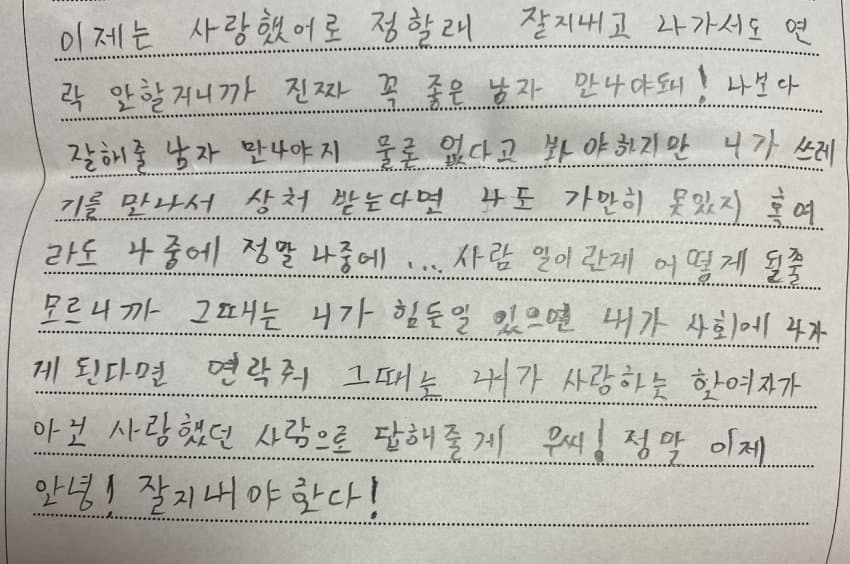 이제는 사랑했어로 정할래 잘지내고 나가서도 연
락 안할거니까 진짜 꼭 좋은 남자 만나야돼! 나보다
잘해줄 남자 만나야지 물론 없다고 봐야하지만 니가 쓰레
기를 만나서 상처 받는다면 나도 가만히 못있지 혹여
라도 나중에 정말 나중에 ... 사람 일이란게 어떻게 될줄
모르니까 그때는 니가 힘든일 있으면 내가 사회에 나가
게 된다면 연락줘 그때는 내가 사랑하는 한여자가
아닌 사랑했던 사람으로 답해줄게 무씨! 정말 이제
안녕! 잘지내야 한다!